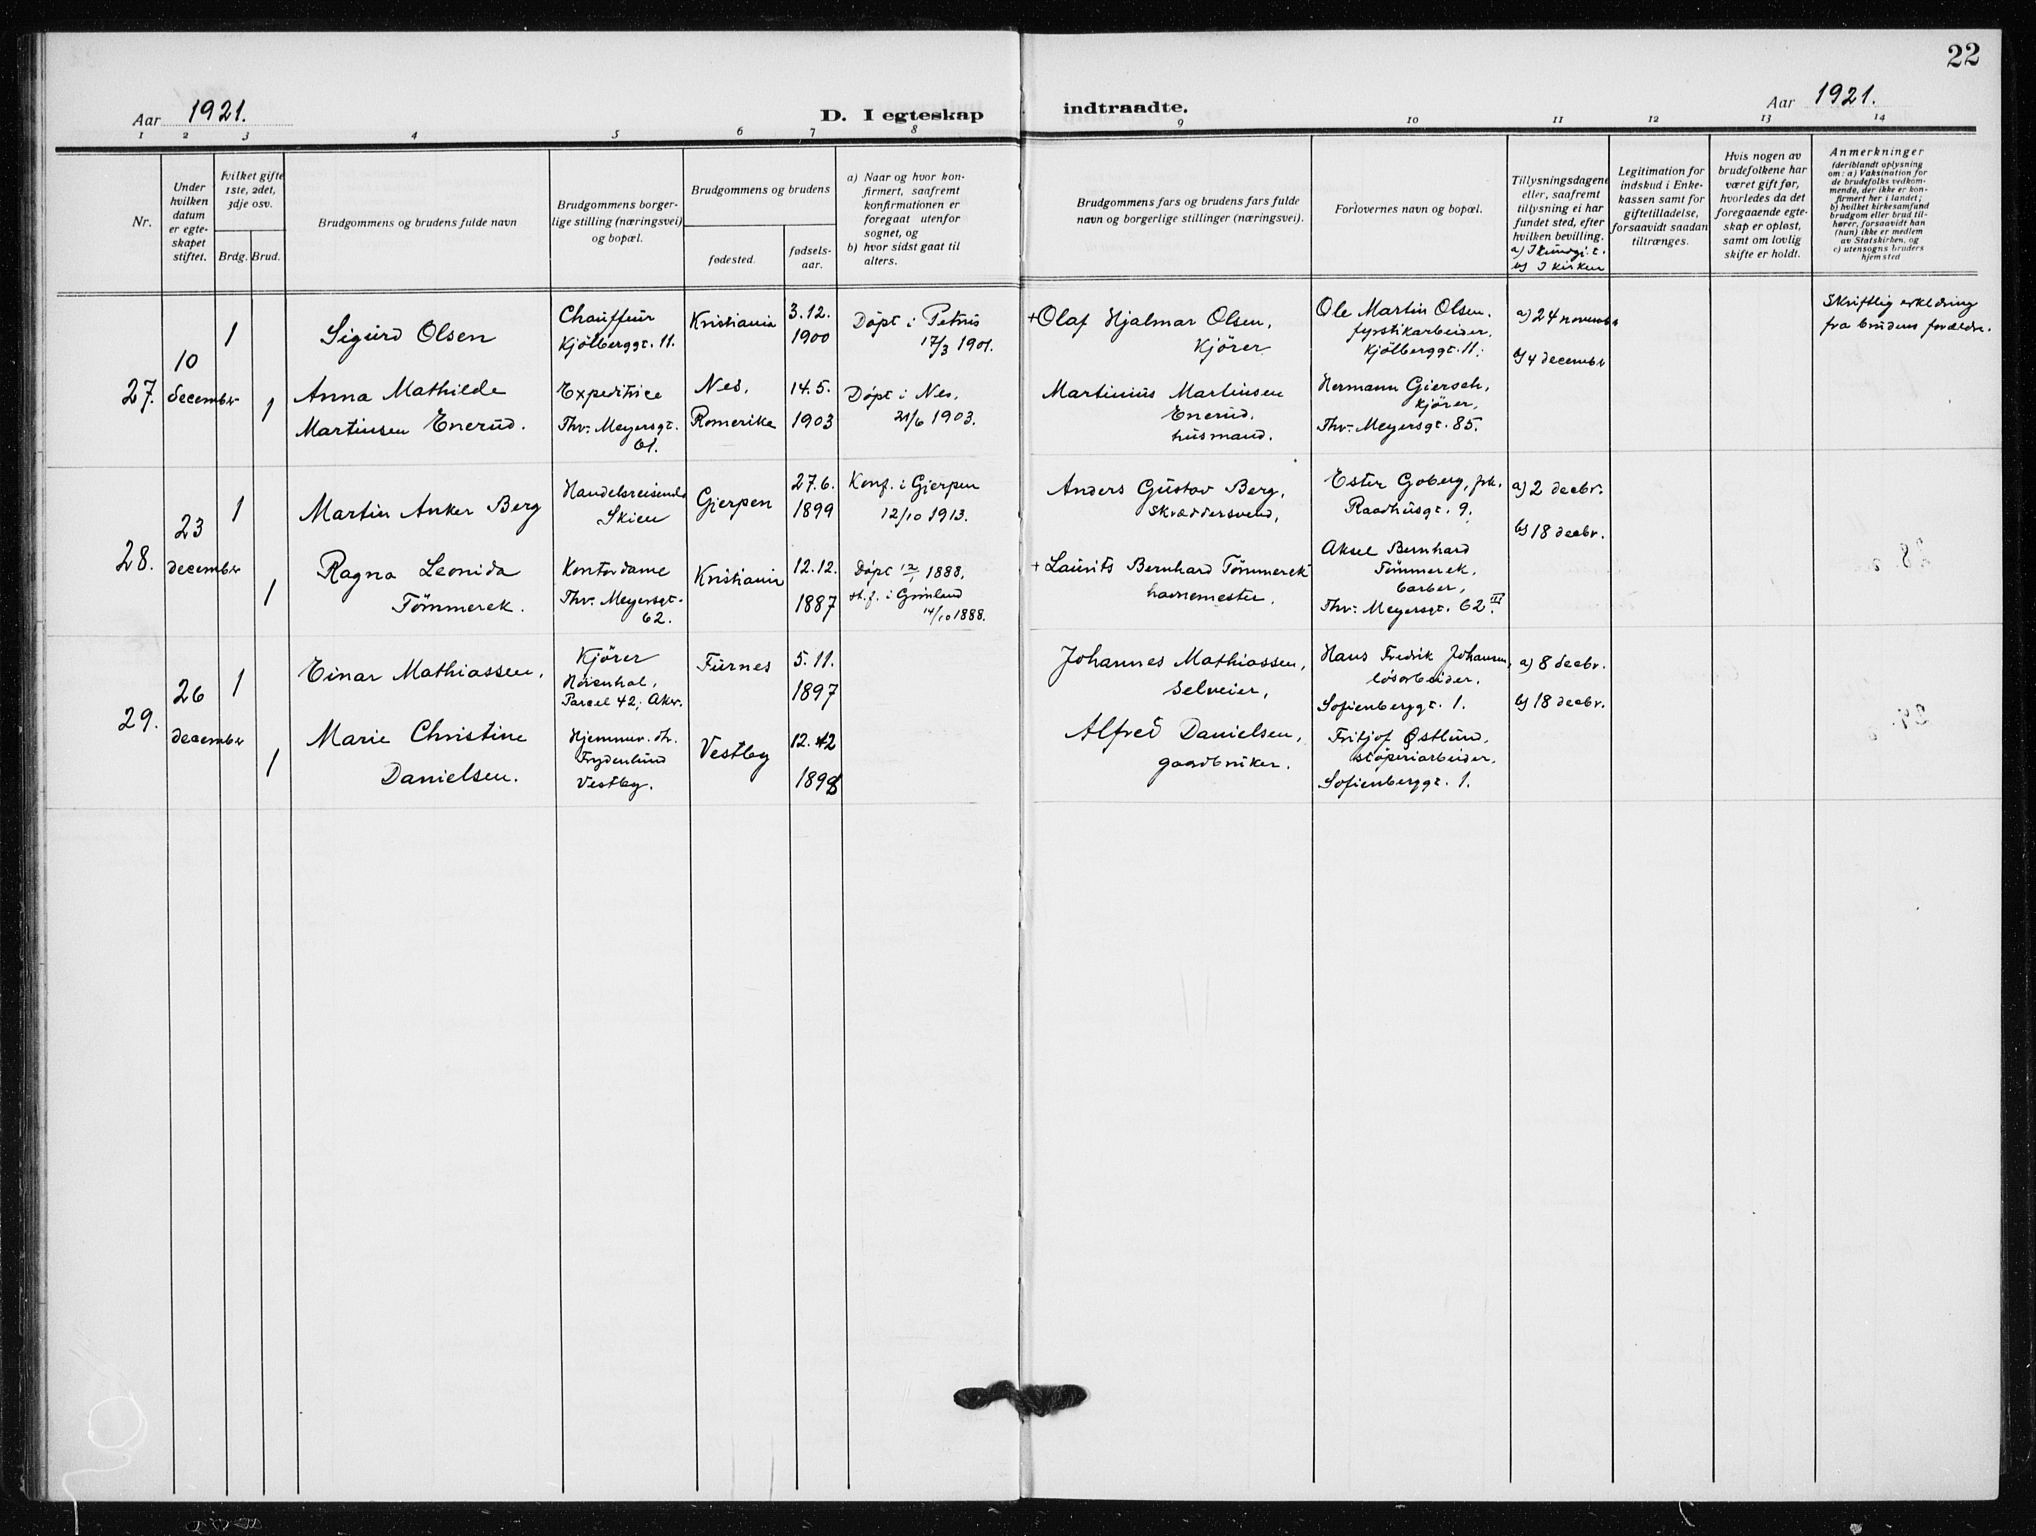 22
Aar 1921.
D. I egteskap indtraadte.
Aar 1921.
1 2 3 4 5 6 7 8 9 10 11 12 13 14
Nr.
Under
hvilken
datum
er egte-
skapet
stiftet.
Hvilket gifte
1ste, 2det,
3dje osv.
Brdg. Brud.
Brudgommens og brudens fulde navn
Brudgommens borger-
lige stilling (næringsvei)
og bopæl.
Brudgommens og brudens
fødested.
fødsels-
aar.
a) Naar og hvor kon-
firmert, saafremt
konfirmationen er
foregaat utenfor
sognet, og
b) hvor sidst gaat til
alters.
Brudgommens fars og brudens fars fulde
navn og borgerlige stillinger (næringsvei).
Forlovernes navn og bopæl.
Tillysningsdagene
eller, saafremt
tillysning ei har
fundet sted, efter
hvilken bevilling.
b) I kirken
Legitimation for
indskud i Enke-
kassen samt for
giftetilladelse,
forsaavidt saadan
tiltrænges.
Hvis nogen av
brudefolkene har
været gift før,
hvorledes da det
foregaaende egte-
skap er opløst,
samt om lovlig
skifte er holdt.
Anmerkninger
(deriblandt oplysning
om: a) Vaksination for
de brudefolks vedkom-
mende, der ikke er kon-
firmert her i landet;
b) hvilket kirkesamfund
brudgom eller brud til-
hører, forsaavidt han
(hun) ikke er medlem
av Statskirken, og
c) utensogns bruders
hjemsted
27.
10
december
1
Sigurd Olsen
Chauffeur
Kjölberggt. 11.
Kristiania
3.12.
1900
Döpt i Petrus
17/3 1901.
+Olaf Hjalmar Olsen,
Kjörer
Ole Martin Olsen,
fyrstikarbeider,
Kjölberggt. 11.
a) 24 novembr
b) 4 decembr
Skriftlig erklæring
fra brudens forældre.
1
Anna Mathilde
Martinsen Enerud.
Expeditrice
Thv. Meyersgt.
61.
Nes,
Romerike
14.5.
1903
Döpt i Nes,
21/6 1903.
Martinius Martinsen
Enerud,
husmand.
Hermann Giersch,
kjörer,
Thv. Meyersgt. 85.
28.
23
december
1
Martin Anker Berg
Handelsreisende
Skien
Gjerpen
27.6.
1899
Konf. i Gjerpen
12/10 1913.
Anders Gustav Berg,
Skræddersvend,
Ester Goberg, frk.
Raadhusgt. 9.
a) 2 decbr.
b) 18 decbr.
1
Ragna Leonida
Tömmerek.
Kontordame
Thv. Meyersgt.
62.
Kristiania
12.12.
1887
Döpt 1888,
st.f. i Grönland
14/10 1888.
+Laurits Bernhard Tömmerek
havnemester.
Aksel Bernhard
Tömmerek,
barber,
Thv. Meyersgt. 62 III
29.
26
december
1
Einar Mathiassen,
Kjörer
Höienhal,
Parcel 42, Aker.
Furnes
5.11.
1897
Johannes Mathiassen,
Selveier,
Hans Fredrik Johansen,
lösarbeider,
Sofienberggt. 1.
a) 8 decbr.
b) 18 decbr.
1
Marie Christine
Danielsen.
Frydenlund
Vestby.
Vestby
12.12
1898
Alfred Danielsen,
gaardbruker.
Fritjof Østlund,
stöperiarbeider,
Sofienberggt. 1.